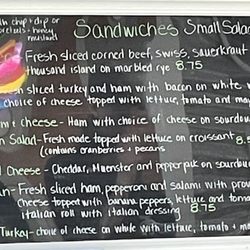 th chip + dip or
pretzels - honey
mustard
Sandwiches Small Salad
Fresh sliced corned beef, swiss, sauerkraut
thousand island on marbled rye 8.75
sh sliced turkey and ham with bacon on white w
choice of cheese topped with lettuce, tomato and ma
m + cheese - Ham with choice of cheese on sourdou
n Salad - Fresh made topped with lettuce on croissant 8.5
(contains cranberries + pecans
d Cheese - Cheddar, Muenster and pepperjack on sourdou
n - Fresh sliced ham, pepperoni and salami with pro
cheese topped with banana peppers, lettuce and toma
italian roll with italian dressing 8.75
Turkey - choice of cheese on whole with lettuce, tomato +